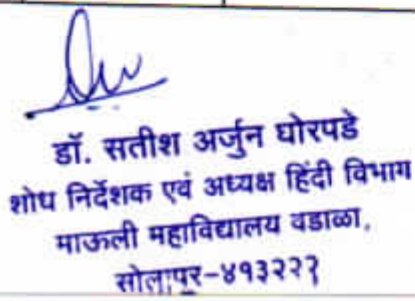 डॉ. सतीश अर्जुन घोरपडे
शोध निर्देशक एवं अध्यक्ष हिंदी विभाग
माऊली महाविद्यालय वडाळा,
सोलापुर-४१३२२२